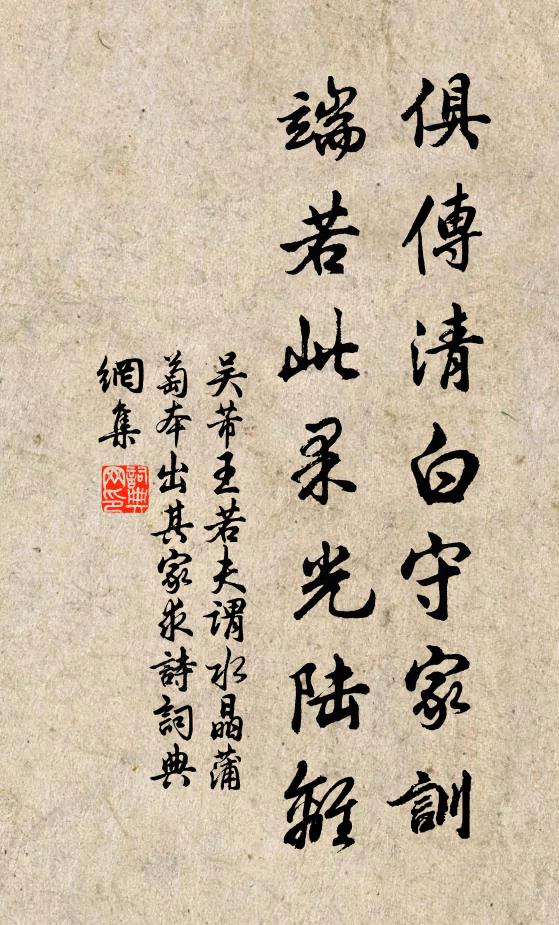 俱傳清白守家訓
端若此果光陸離
吴芾王若夫谓水晶蒲
萄本出其家求詩詞典
網集
詞典網印